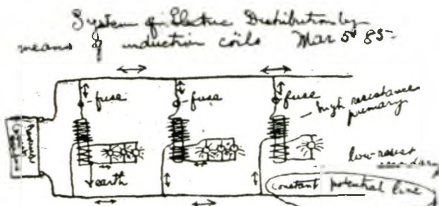 System of Electric Distribution by
means of induction coils Mar 5th 85-
fuse
fuse
fuse
high resistance
primary
earth
low resist
secondary
constant potential line